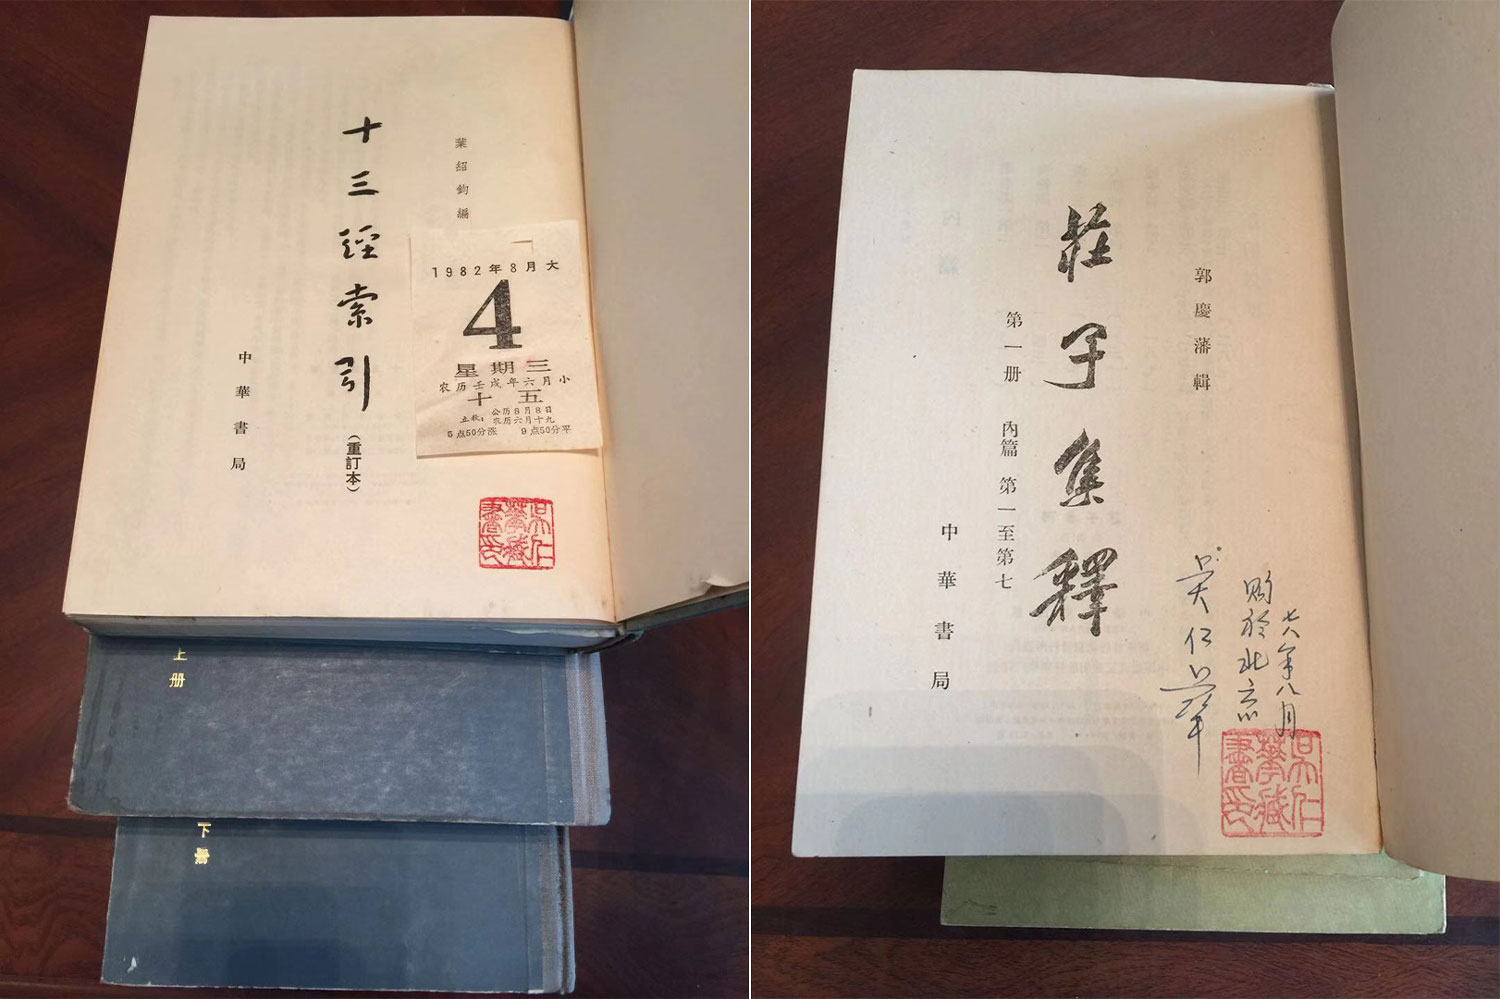 葉紹鈞編
十三經索引
(重訂本)
中華書局
1982年8月大
4
星期三
农历壬戌年六月小
十五
立秋:
公历8月8日
农历六月十九
5点50分涨
9点50分平
吴仁華藏書印
上册
下册
郭慶藩輯
莊子集釋
第一册 內篇 第一至第七
中華書局
七八年八月
购於北京
吴仁華
吴仁華藏書印